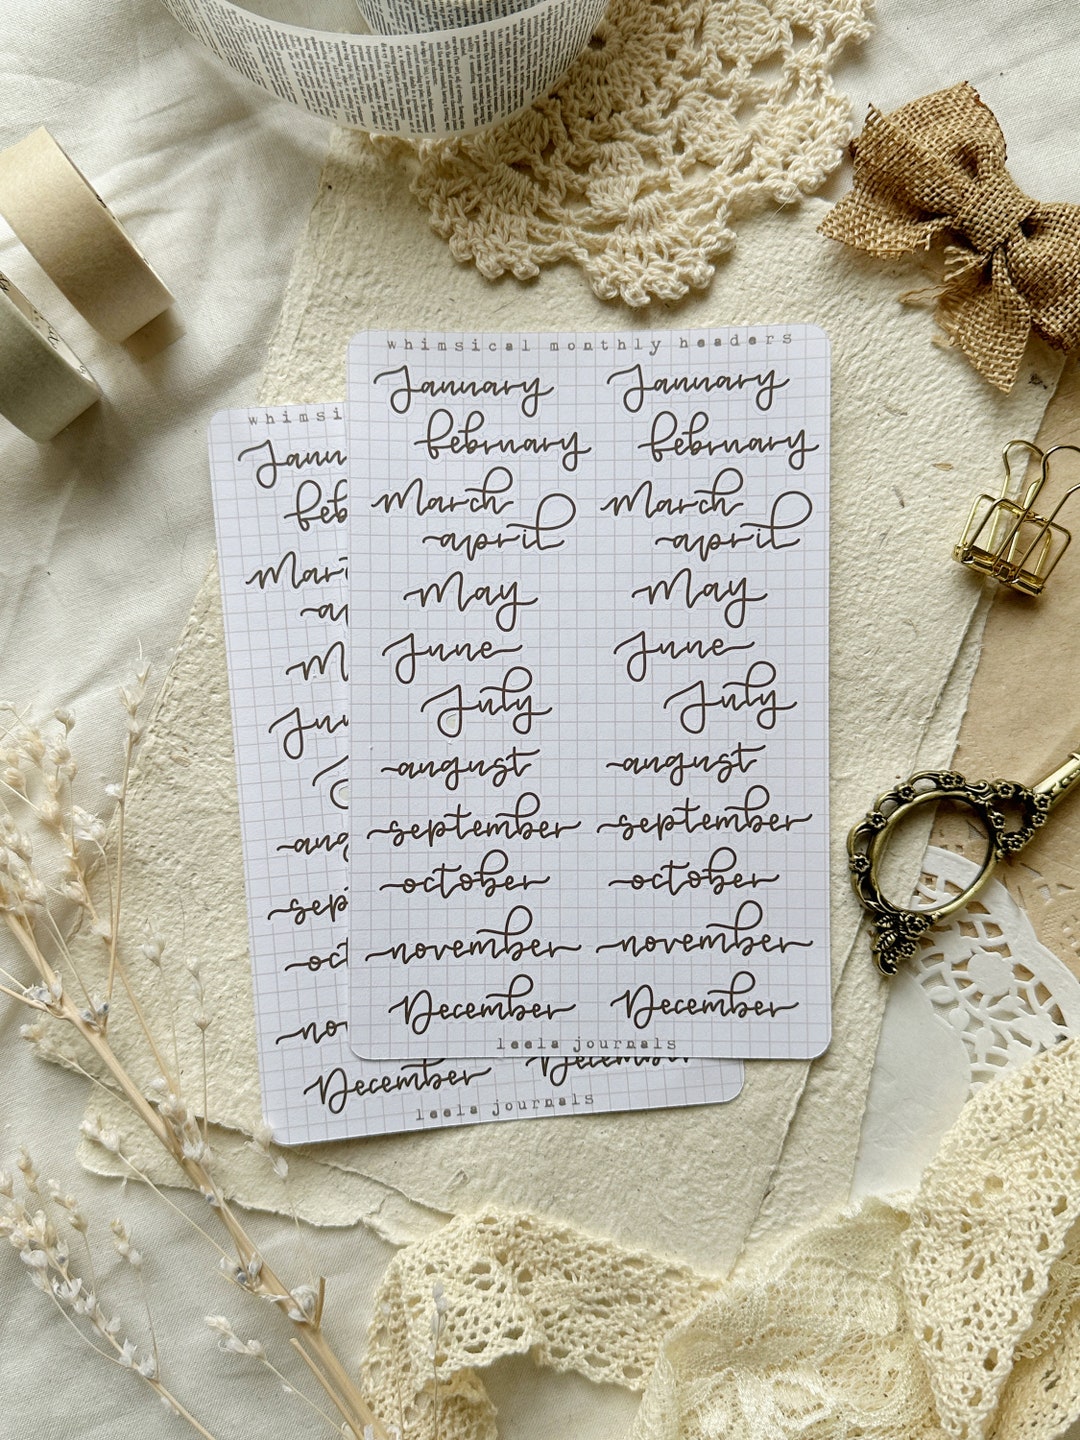 whimsical monthly headers
January January
february february
March March
april april
May May
June June
July July
august august
september september
october october
november november
December December
leela journals
whimsi
Janu
feb
Mar
a
M
Ju
aug
sep
oct
no
December December
leela journals